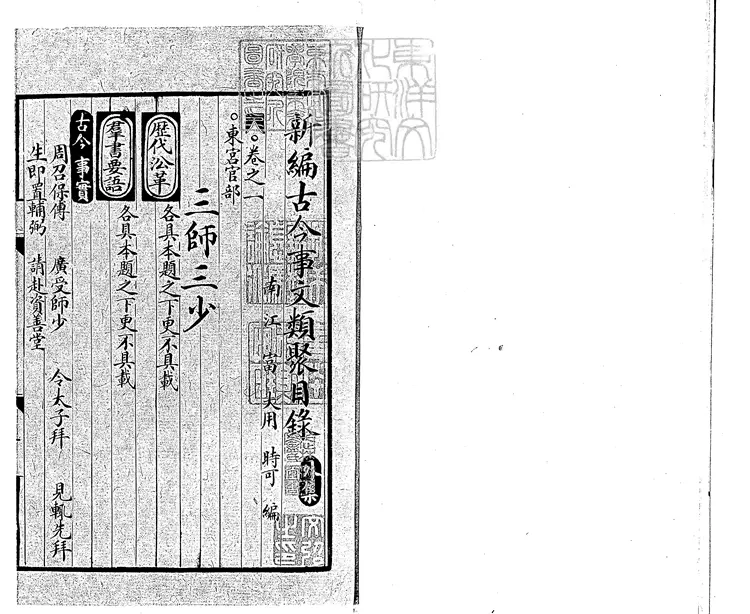 新編古今事文類聚目錄 外集
南江富大用時可編
○卷之一
○東宮官部
三師三少
歷代沿革 各具本題之下更不具載
羣書要語 各具本題之下更不具載
古今事實
周召保傅 廣受師少 令太子拜 見輒先拜
生即置輔弼 請赴資善堂